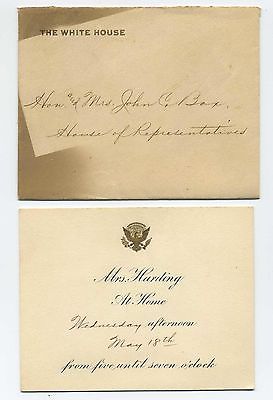 THE WHITE HOUSE
Hon. & Mrs. John C. Box,
House of Representatives
Mrs. Harding
At Home
Wednesday afternoon
May 18th
from five until seven o'clock